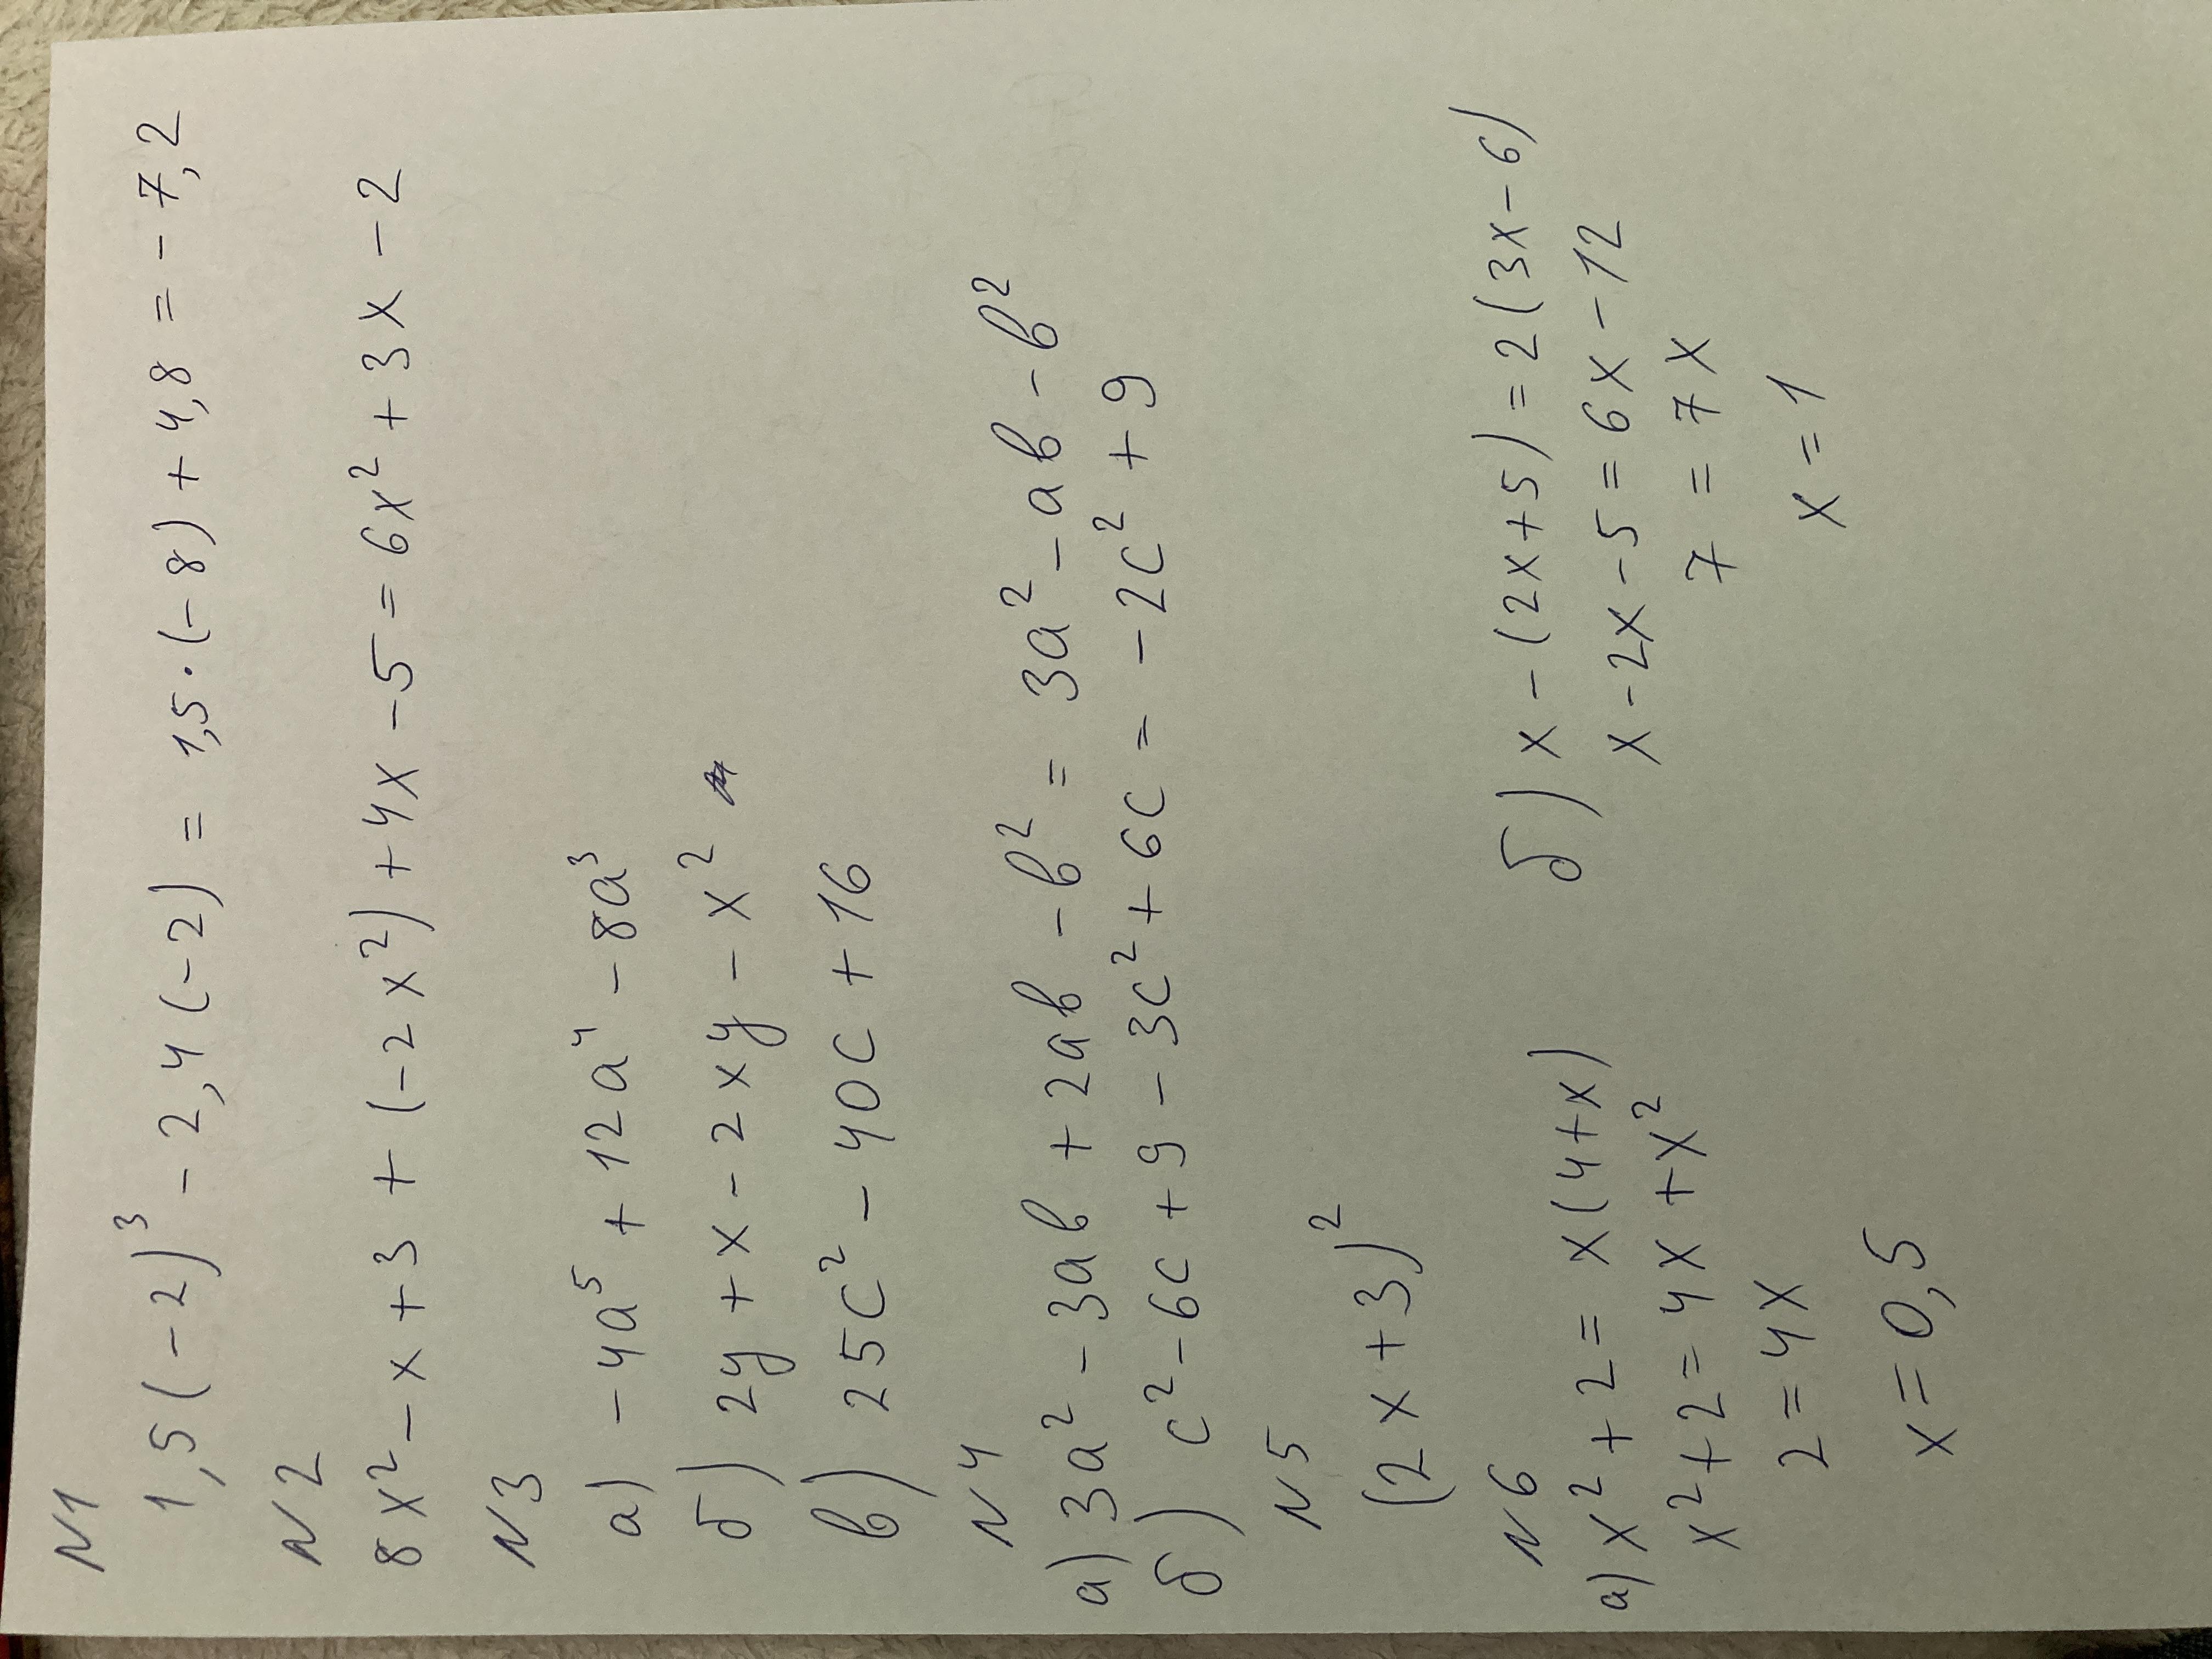 N1
1,5(-2)³ - 2,4(-2) = 1,5·(-8) + 4,8 = -7,2
N2
8x² - x + 3 + (-2x²) + 4x - 5 = 6x² + 3x - 2
N3
а) -4a⁵ + 12a⁴ - 8a³
б) 2y + x - 2xy - x²
в) 25c² - 40c + 16
N4
а) 3a² - 3ab + 2ab - b² = 3a² - ab - b²
б) c² - 6c + 9 - 3c² + 6c = -2c² + 9
N5
(2x + 3)²
N6
а) x² + 2 = x(4+x)
x² + 2 = 4x + x²
2 = 4x
x = 0,5
б) x - (2x+5) = 2(3x-6)
x - 2x - 5 = 6x - 12
7 = 7x
x = 1